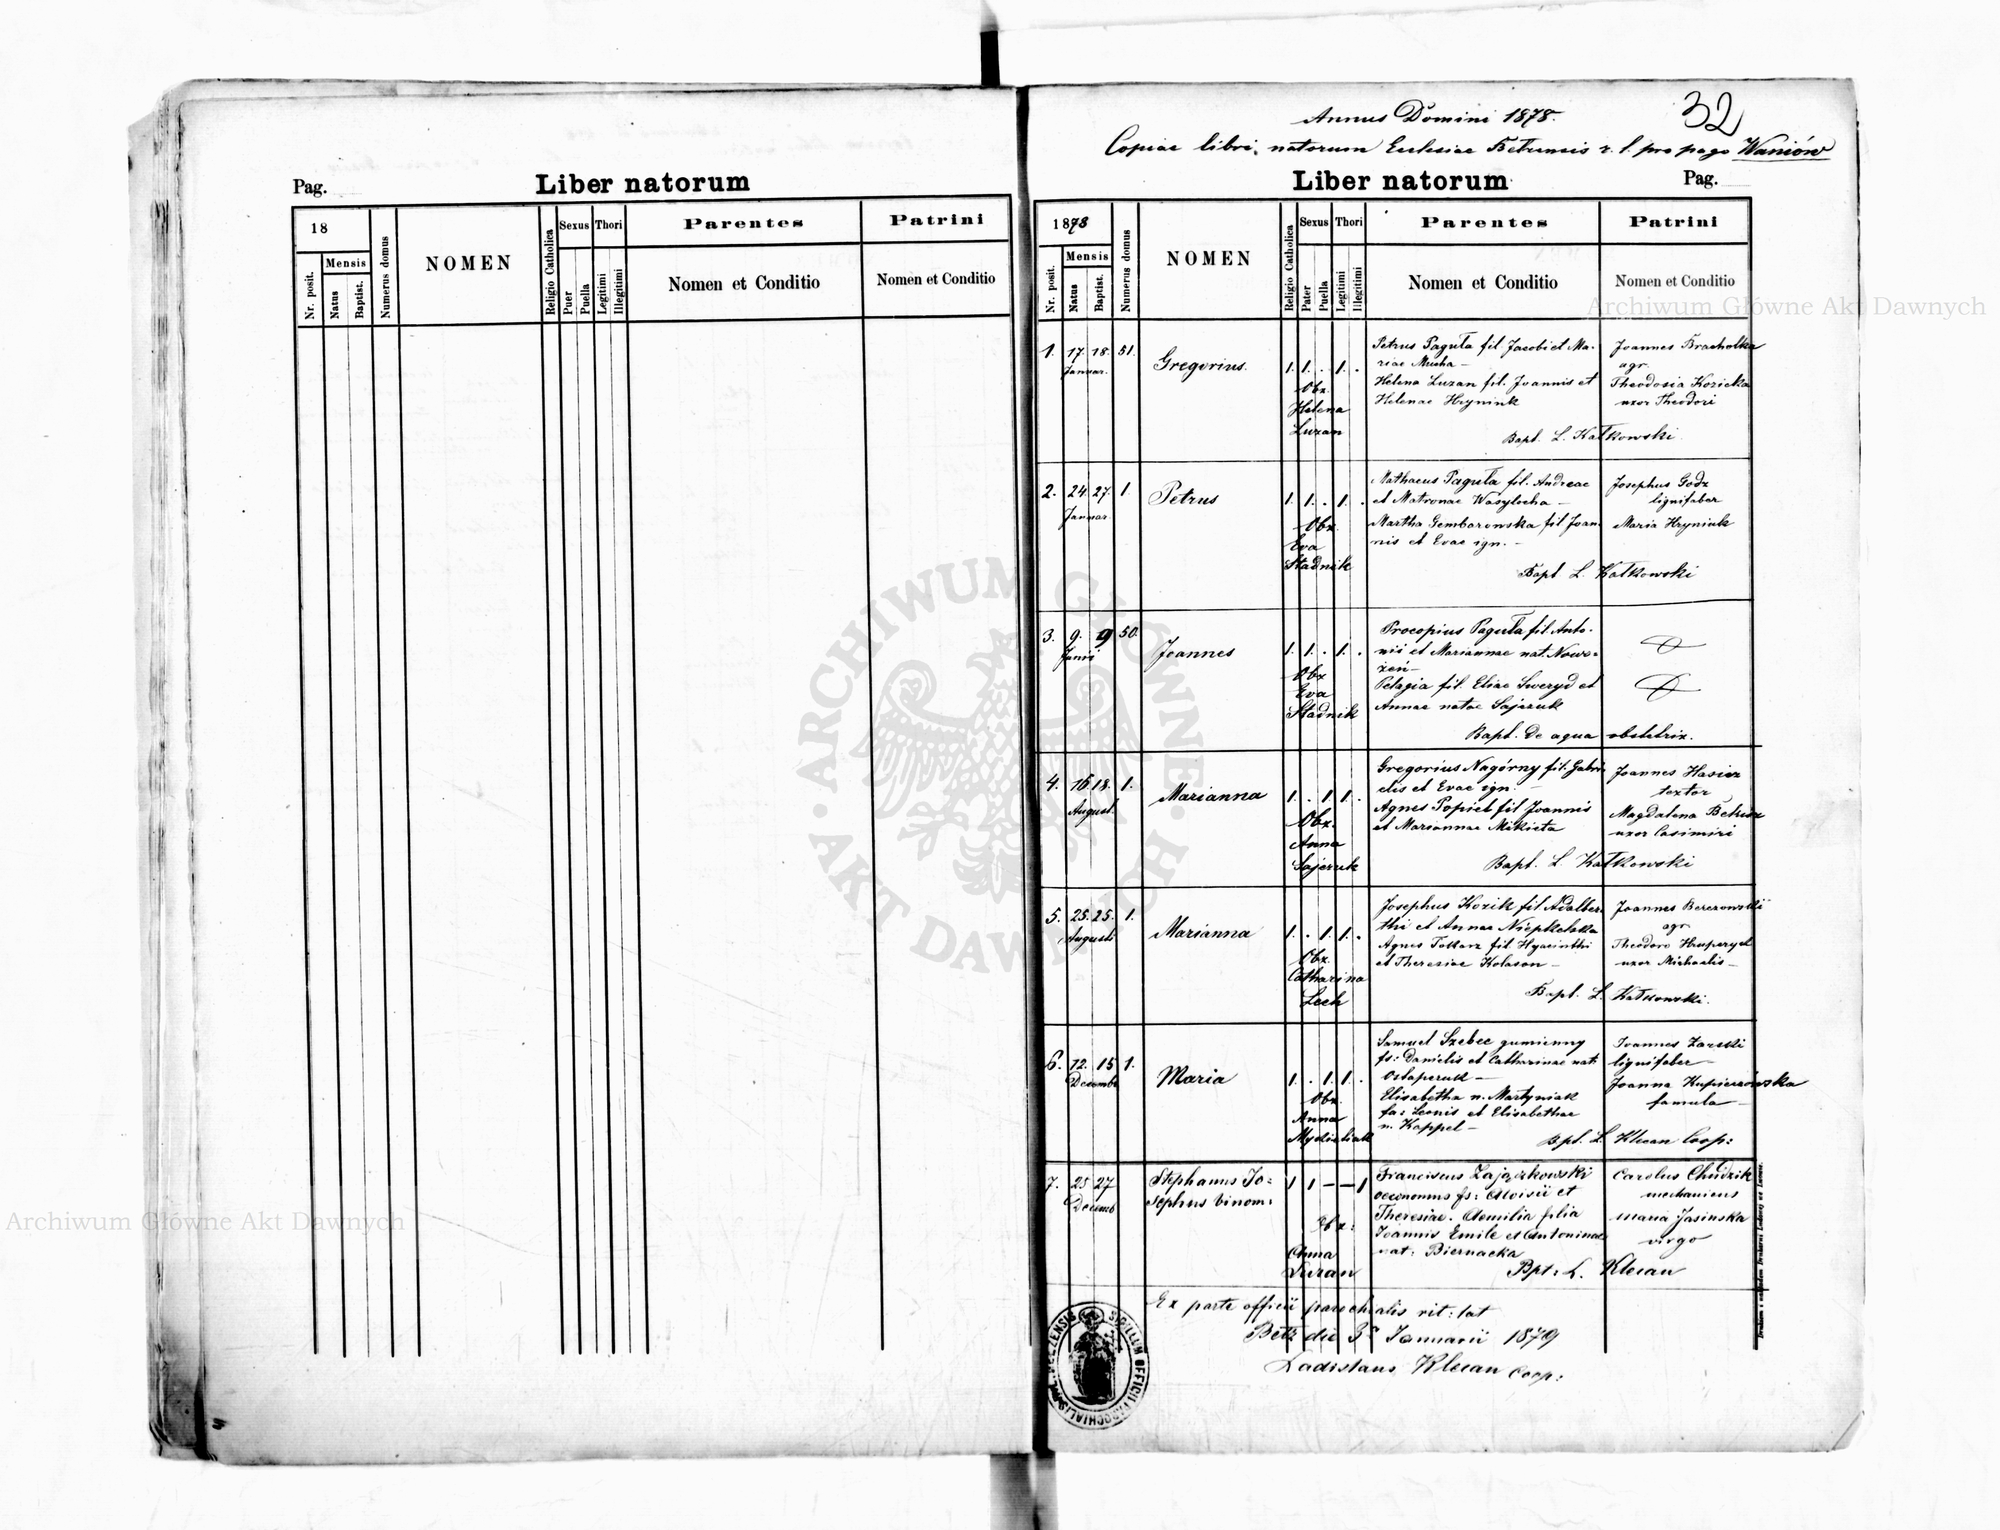 Pag.
Liber natorum
18
Mensis
Nr. posit.
Natus
Baptist.
Numerus domus
NOMEN
Religio Catholica
Sexus
Puer
Puella
Thori
Legitimi
Illegitimi
Parentes
Nomen et Conditio
Patrini
Nomen et Conditio
32
Annus Domini 1878.
Copiae libri natorum Ecclesiae Betzensis r. l. pro pago Waniów
Liber natorum
Pag.
1878
Mensis
Nr. posit.
Natus
Baptist.
Numerus domus
NOMEN
Religio Catholica
Sexus
Pater
Puella
Thori
Legitimi
Illegitimi
Parentes
Nomen et Conditio
Patrini
Nomen et Conditio
1. 17. 18. 51.
Januar.
Gregorius.
1. 1. . 1. .
Obx.
Helena
Luzan
Petrus Paguła fil. Jacobi et Ma-
riae Mucha —
Helena Luzan fil. Joannis et
Helenae Hryniuk
Joannes
agr.
Theodosia Kozicka
uxor Theodori
Bapt. L. Katkowski.
2. 24. 27. 1.
Januar
Petrus
1. 1. . 1. .
Obx.
Eva
Stadnik
Mathaeus Paguła fil. Andreae
et Matronae Wasylocha —
Martha Gemborowska fil Joan
nis et Evae ign. —
Josephus Godz
lignifaber
Maria Hryniuk
Bapt L. Katkowski
3. 9. 9 50.
Junii
Joannes
1. 1. . 1. .
Obx
Eva
Stadnik
Procopius Paguła fil. Anto-
nii et Mariannae nat. Nowo-
żeń —
Pelagia fil. Eliae Sweryd et
Annae natae Sajczuk
Bapt. De aqua obstetrix.
4. 16 18. 1.
August.
Marianna
1. . 1 1 .
Obx.
Anna
Sajczuk
Gregorius Nagórny fil. Gabri
elis et Evae ign. —
Agnes Popiel fil Joannis
et Mariannae Mikieta
Joannes Hasicz
textor
Magdalena
uxor Casimiri
Bapt. L Katkowski
5. 25. 25. 1.
Augusti
Marianna
1. . 1. 1. .
Obx.
Catharina
Lech
Josephus Kozik fil Adalber
thi et Annae
Agnes Tokarz fil. Hyacinthi
et Theresiae Kolason —
Joannes Berezowski
agr
Theodora
uxor Michaelis —
Bapt. L. Katkowski.
6. 12. 15 1.
Decemb
Maria
1. . 1. 1. .
Obx.
Anna
Samuel Szebec gumienny
fs: Danielis et Catharinae nat:
Ostapczuk —
Elisabetha n. Martyniak
fa: Leonis et Elisabethae
n. Kappel —
Joannes Zarski
lignifaber —
Joanna
famula —
Bpt. L Klecan Coop:
7. 25 27
Decemb
Stephanus Jo=
sephus binom:
1 1 — — 1
Obx:
Anna
Luzan
Franciscus Zajączkowski
oeconomus fs: Aloisii et
Theresiae. Aemilia filia
Joannis Emile et Antoninae
nat: Biernacka
Carolus Chudzik
mechanicus
Maria Jasinska
virgo
Bpt: L. Klecan
Ex parte officii parochialis rit: lat
Betz die 3a Januarii 1879
Ladislaus Klecan Coop:
SIGILLUM OFFICII PAROCHIALIS
ARCHIWUM GŁÓWNE AKT DAWNYCH
Archiwum Główne Akt Dawnych
Archiwum Główne Akt Dawnych